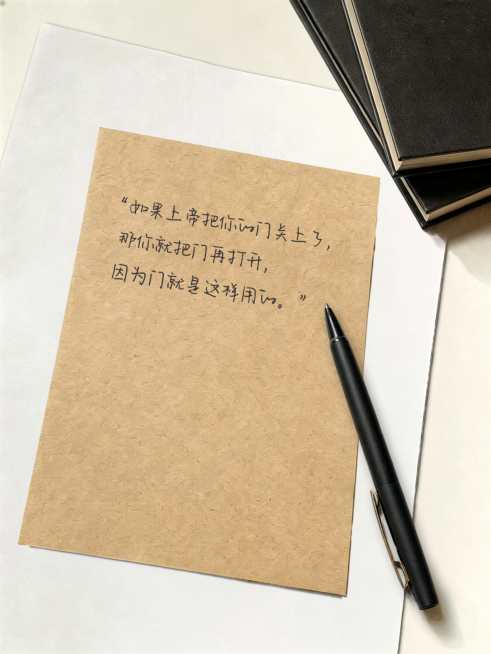 “如果上帝把你的门关上了,
那你就把门再打开,
因为门就是这样用的。”